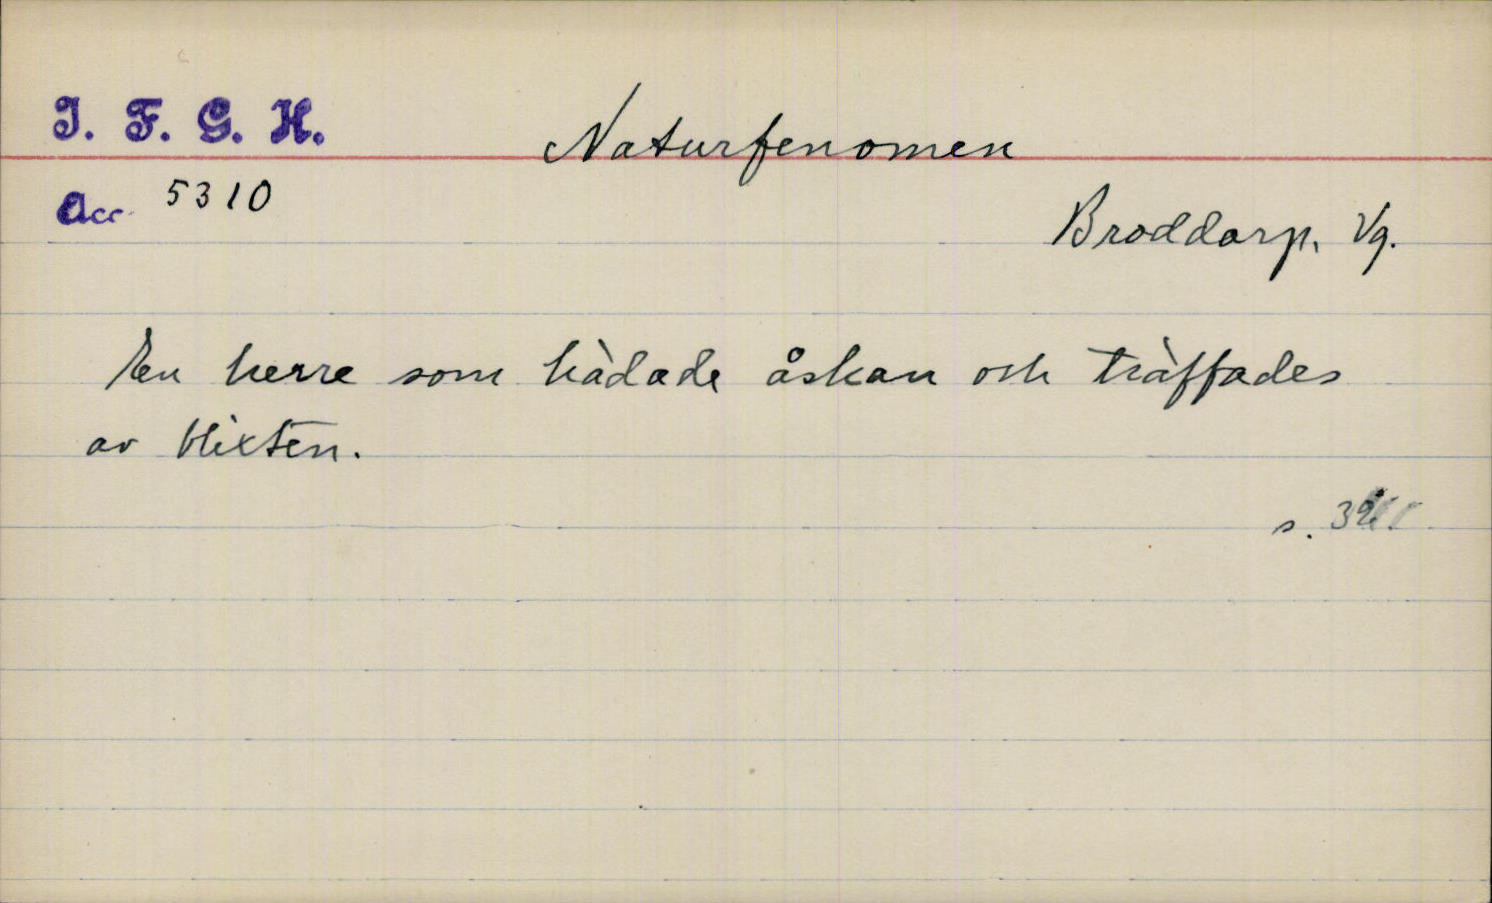 I. F. G. H.
Naturfenomen
Acc. 5310
Broddarp. Vg.
En herre som hädade åskan och träffades
av blixten.
s.